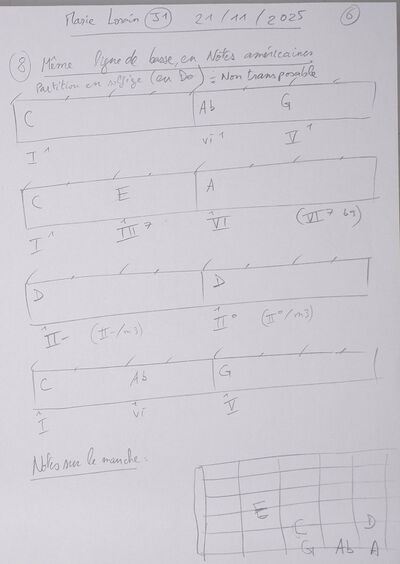 Marie Lorvin J1 21/11/2025 6
8 Même ligne de basse, en Notes américaines
Partition en solfège (en Do) = Non transposable
C Ab G
I 1 vi 1 V 1
C E A
I 1 III 7 VI (VI 7 b9)
D D
II- (II-/m3) II° (II°/m3)
C Ab G
I vi V
Notes sur le manche :
E
C D
G Ab A